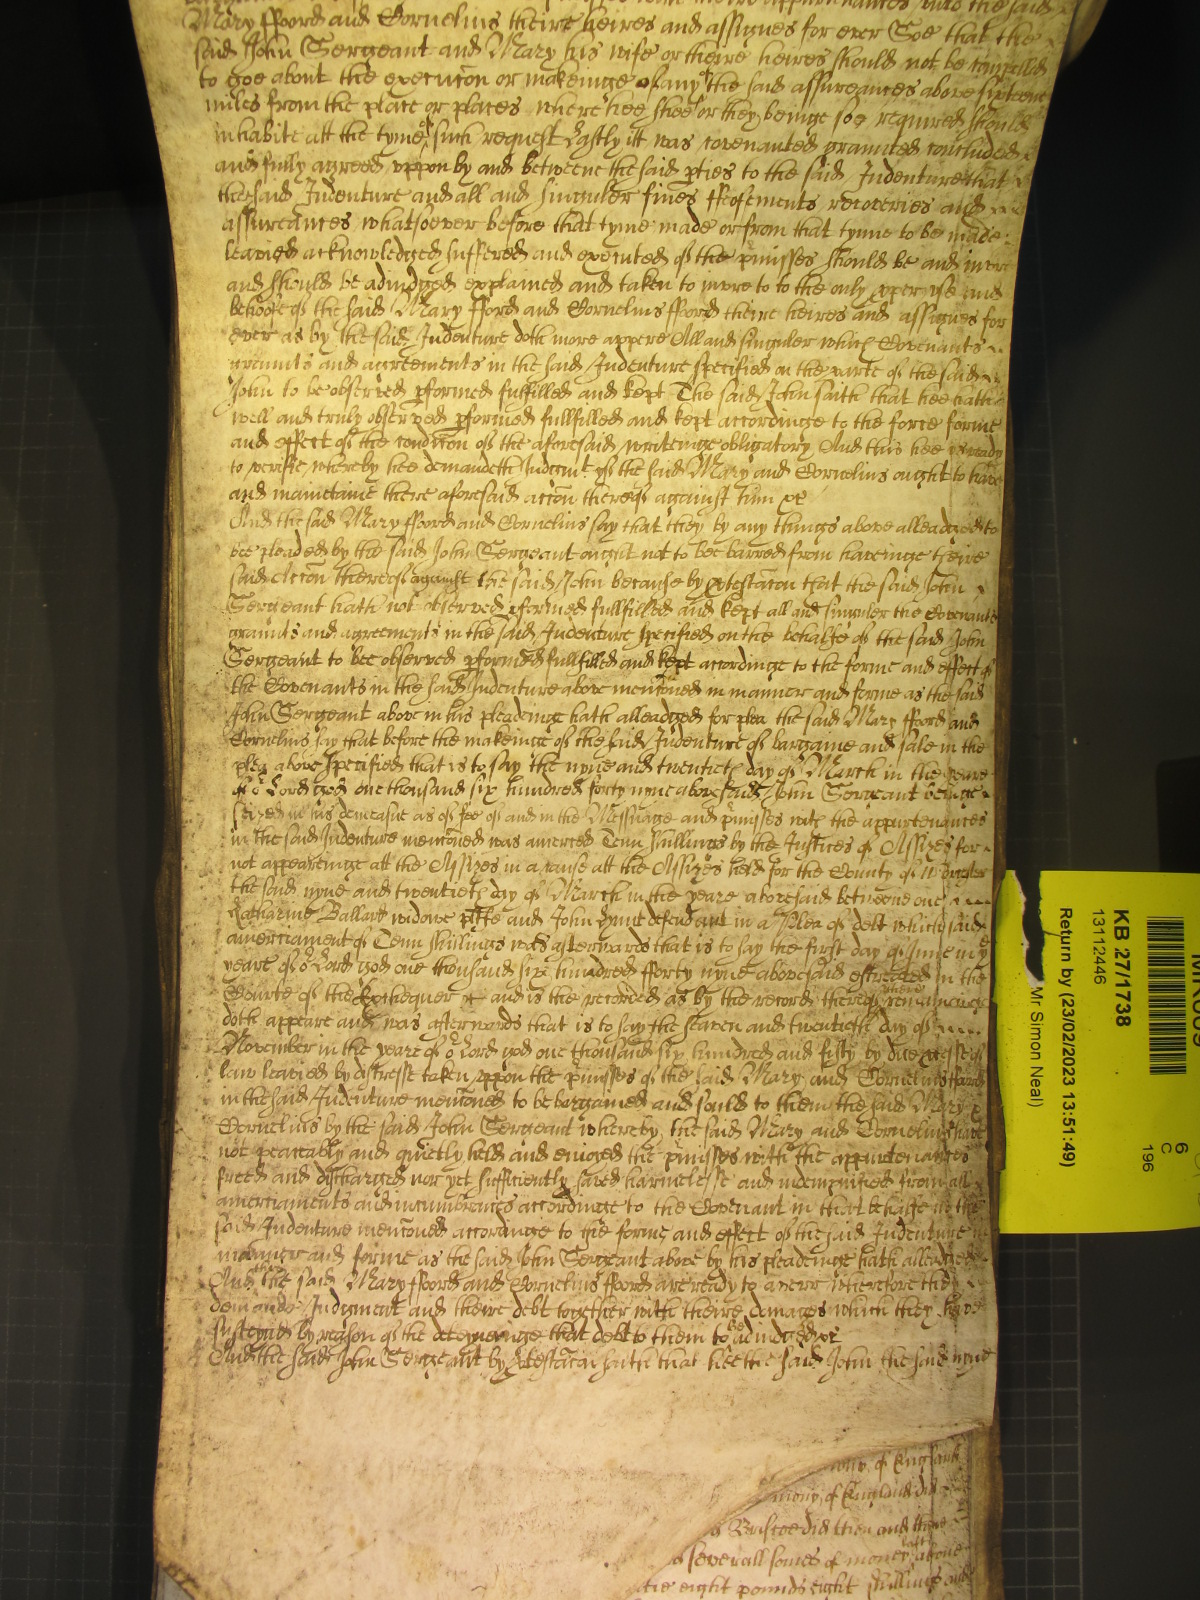 Mary fford and Cornelius theire heires and assignes for ever Soe that the
said John Sergeant and Mary his wife or theire heires should not be compelled
to goe about the execucon or makeinge of any the said assureances above sixteene
miles from the place or places where hee shee or they beinge soe required should
inhabite att the tyme of such request Lastly itt was covenanted graunted concluded
and fully agreed uppon by and betweene the said pties to the said Indenture that
the said Indenture and all and singuler fines ffeofements recoveries and
assureances whatsoever before that tyme made or from that tyme to be made
leavied acknowledged suffered and executed of the pmisses should be and inure
and should be adiudged explained and taken to inure to to the only pper use and
behoofe of the said Mary fford and Cornelius fford theire heires and assignes for
ever as by the said Indenture doth more appere All and singuler which Covenants
graunts and agreements in the said Indenture specified on the parte of the said
John to be observed pformed fulfilled and kept The said John saith that hee hath
well and truly observed pformed fullfilled and kept accordinge to the force forme
and effect of the condicon of the aforesaid writeinge obligatory And this hee is ready
to verifie whereby hee demaundeth Iudgmt if the said Mary and Cornelius ought to have
and mainetaine there aforesaid accon thereof against him &c
And the said Mary fford and Cornelius say that they by any things above alleadged to
bee pleaded by the said John Sergeant ought not to bee barred from haveinge theire
said Accon thereof against the said John because by ptestacon that the said John
Sergeant hath not observed pformed fullfilled and kept all and singuler the Covenants
graunts and agreements in the said Indenture specified on the behalfe of the said John
Sergeant to bee observed pformed fullfilled and kept accordinge to the forme and effect of
the Covenants in the said Indenture above menconed in manner and forme as the said
John Sergeant above in his pleadinge hath alleadged for plea the said Mary fford and
Cornelius say that before the makeinge of the said Indenture of bargaine and sale in the
plea above specified that is to say the nyne and twentieth day of March in the yeare
of or Lord god one thousand six hundred forty nyne abovesaid John Sergeant beinge
seized in his demeasne as of fee of and in the Messuage and pmisses with the appurtenances
in the said Indenture menconed was amerced Tenn shillings by the Justices of Assizes for
not appeareinge att the Assizes in a cause att the Assizes held for the County of
the said nyne and twentieth day of March in the yeare abovesaid betweene one
Katharine Ballard widowe pltffe and John Lyne defendant in a Plea of debt which said
amerciament of Tenn shillings was afterwards that is to say the first day of June in ye
yeare of or Lord god one thousand six hundred fforty nyne abovesaid estreated in the
Courte of the Exchequer &c and is there recorded as by the record thereof there remaineinge
doth appeare and was afterwards that is to say the seaven and twentieth day of
November in the yeare of or Lord god one thousand six hundred and fifty by due processe of
law leavied by distresse taken uppon the pmisses of the said Mary and Cornelius fford
in the said Indenture menconed to be bargained and sould to them the said Mary &
Cornelius by the said John Sergeant whereby the said Mary and Cornelius have
not peaceably and quietly held and enioyed the pmisses with the appurtenances
freed and discharged nor yet sufficiently saved harmelesse and indempnified from all
amerciaments and incumbrances accordinge to the Covenant in that behalfe in the
said Indenture menconed accordinge to the forme and effect of the said Indenture in
manner and forme as the said John Sergeant above by his pleadeinge hath alleadged
And this the said Mary fford and Cornelius fford are ready to averr wherefore they
demand Iudgment and theire debt together with theire damages which they have
susteyned by reason of the deteyneinge that debt to them to be adiudged &c
And the said John Sergeant by ptestacon saith that hee the said John the said nyne
mony of England
mony of England did
Briscoe did then and there
severall somes of money last above
the eight pounds eight shillings and
KB 27/1738
13112446
Return by (23/02/2023 13:51:49)
Mr Simon Neal)
6
C
196